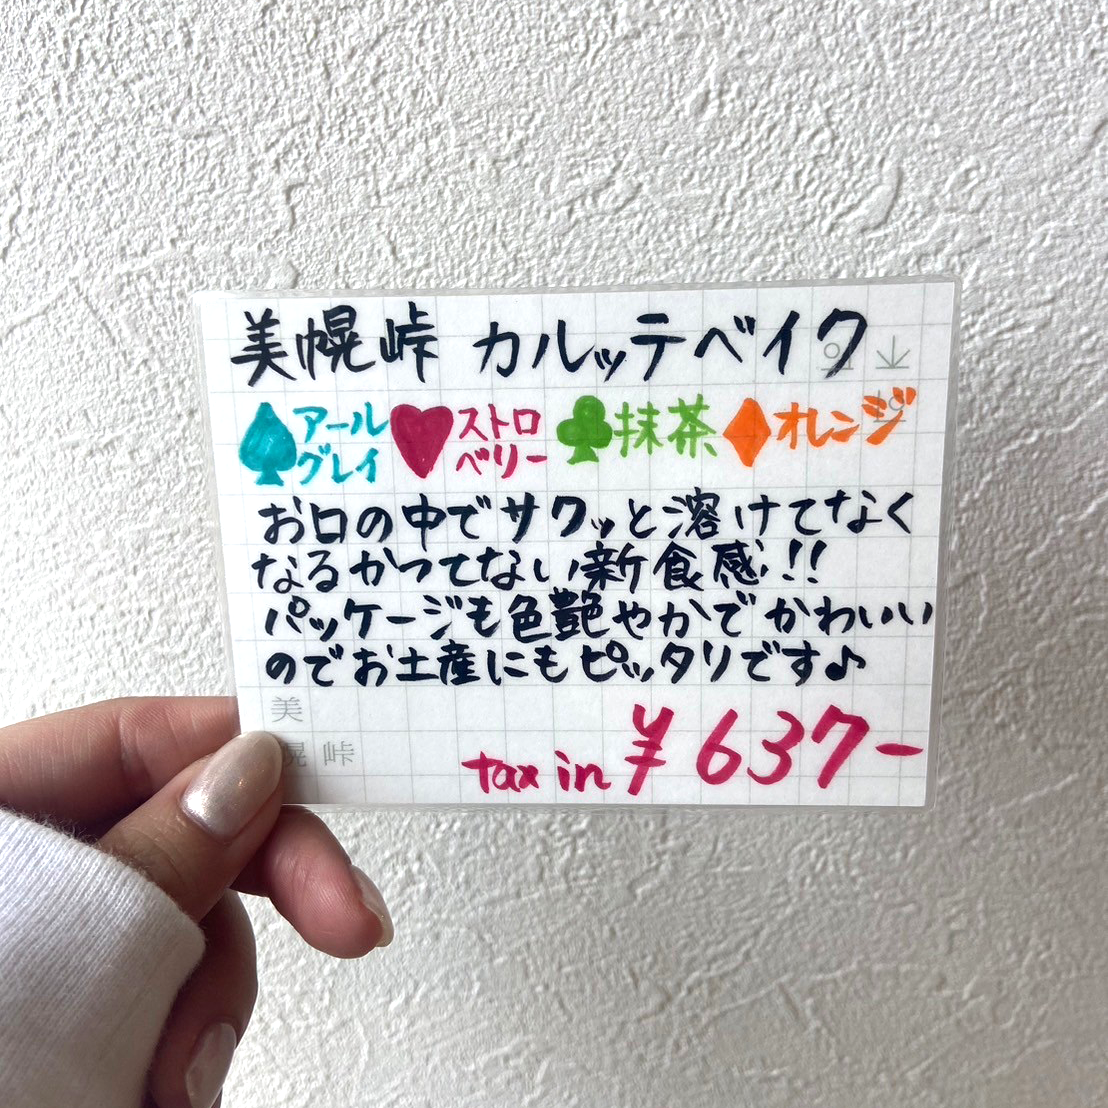 美幌峠 カルッテベイク
アールグレイ ストロベリー 抹茶 オレンジ
お口の中でサクッと溶けてなく
なるかつてない新食感!!
パッケージも色艶やかでかわいい
のでお土産にもピッタリです♪
美
幌峠
tax in ¥637-